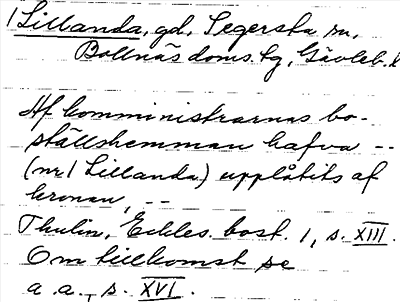 1 Lillanda, gd, Segersta sn,
Bollnäs doms. tg, Gävleb. l
Af komministrarnas bo-
ställshemman hafva --
(nr 1 Lillanda) upplåtits af
kronan, --
Thulin, Eckles. bost. 1, s. XIII.
Om tillkomst se
a. a., s. XVI.